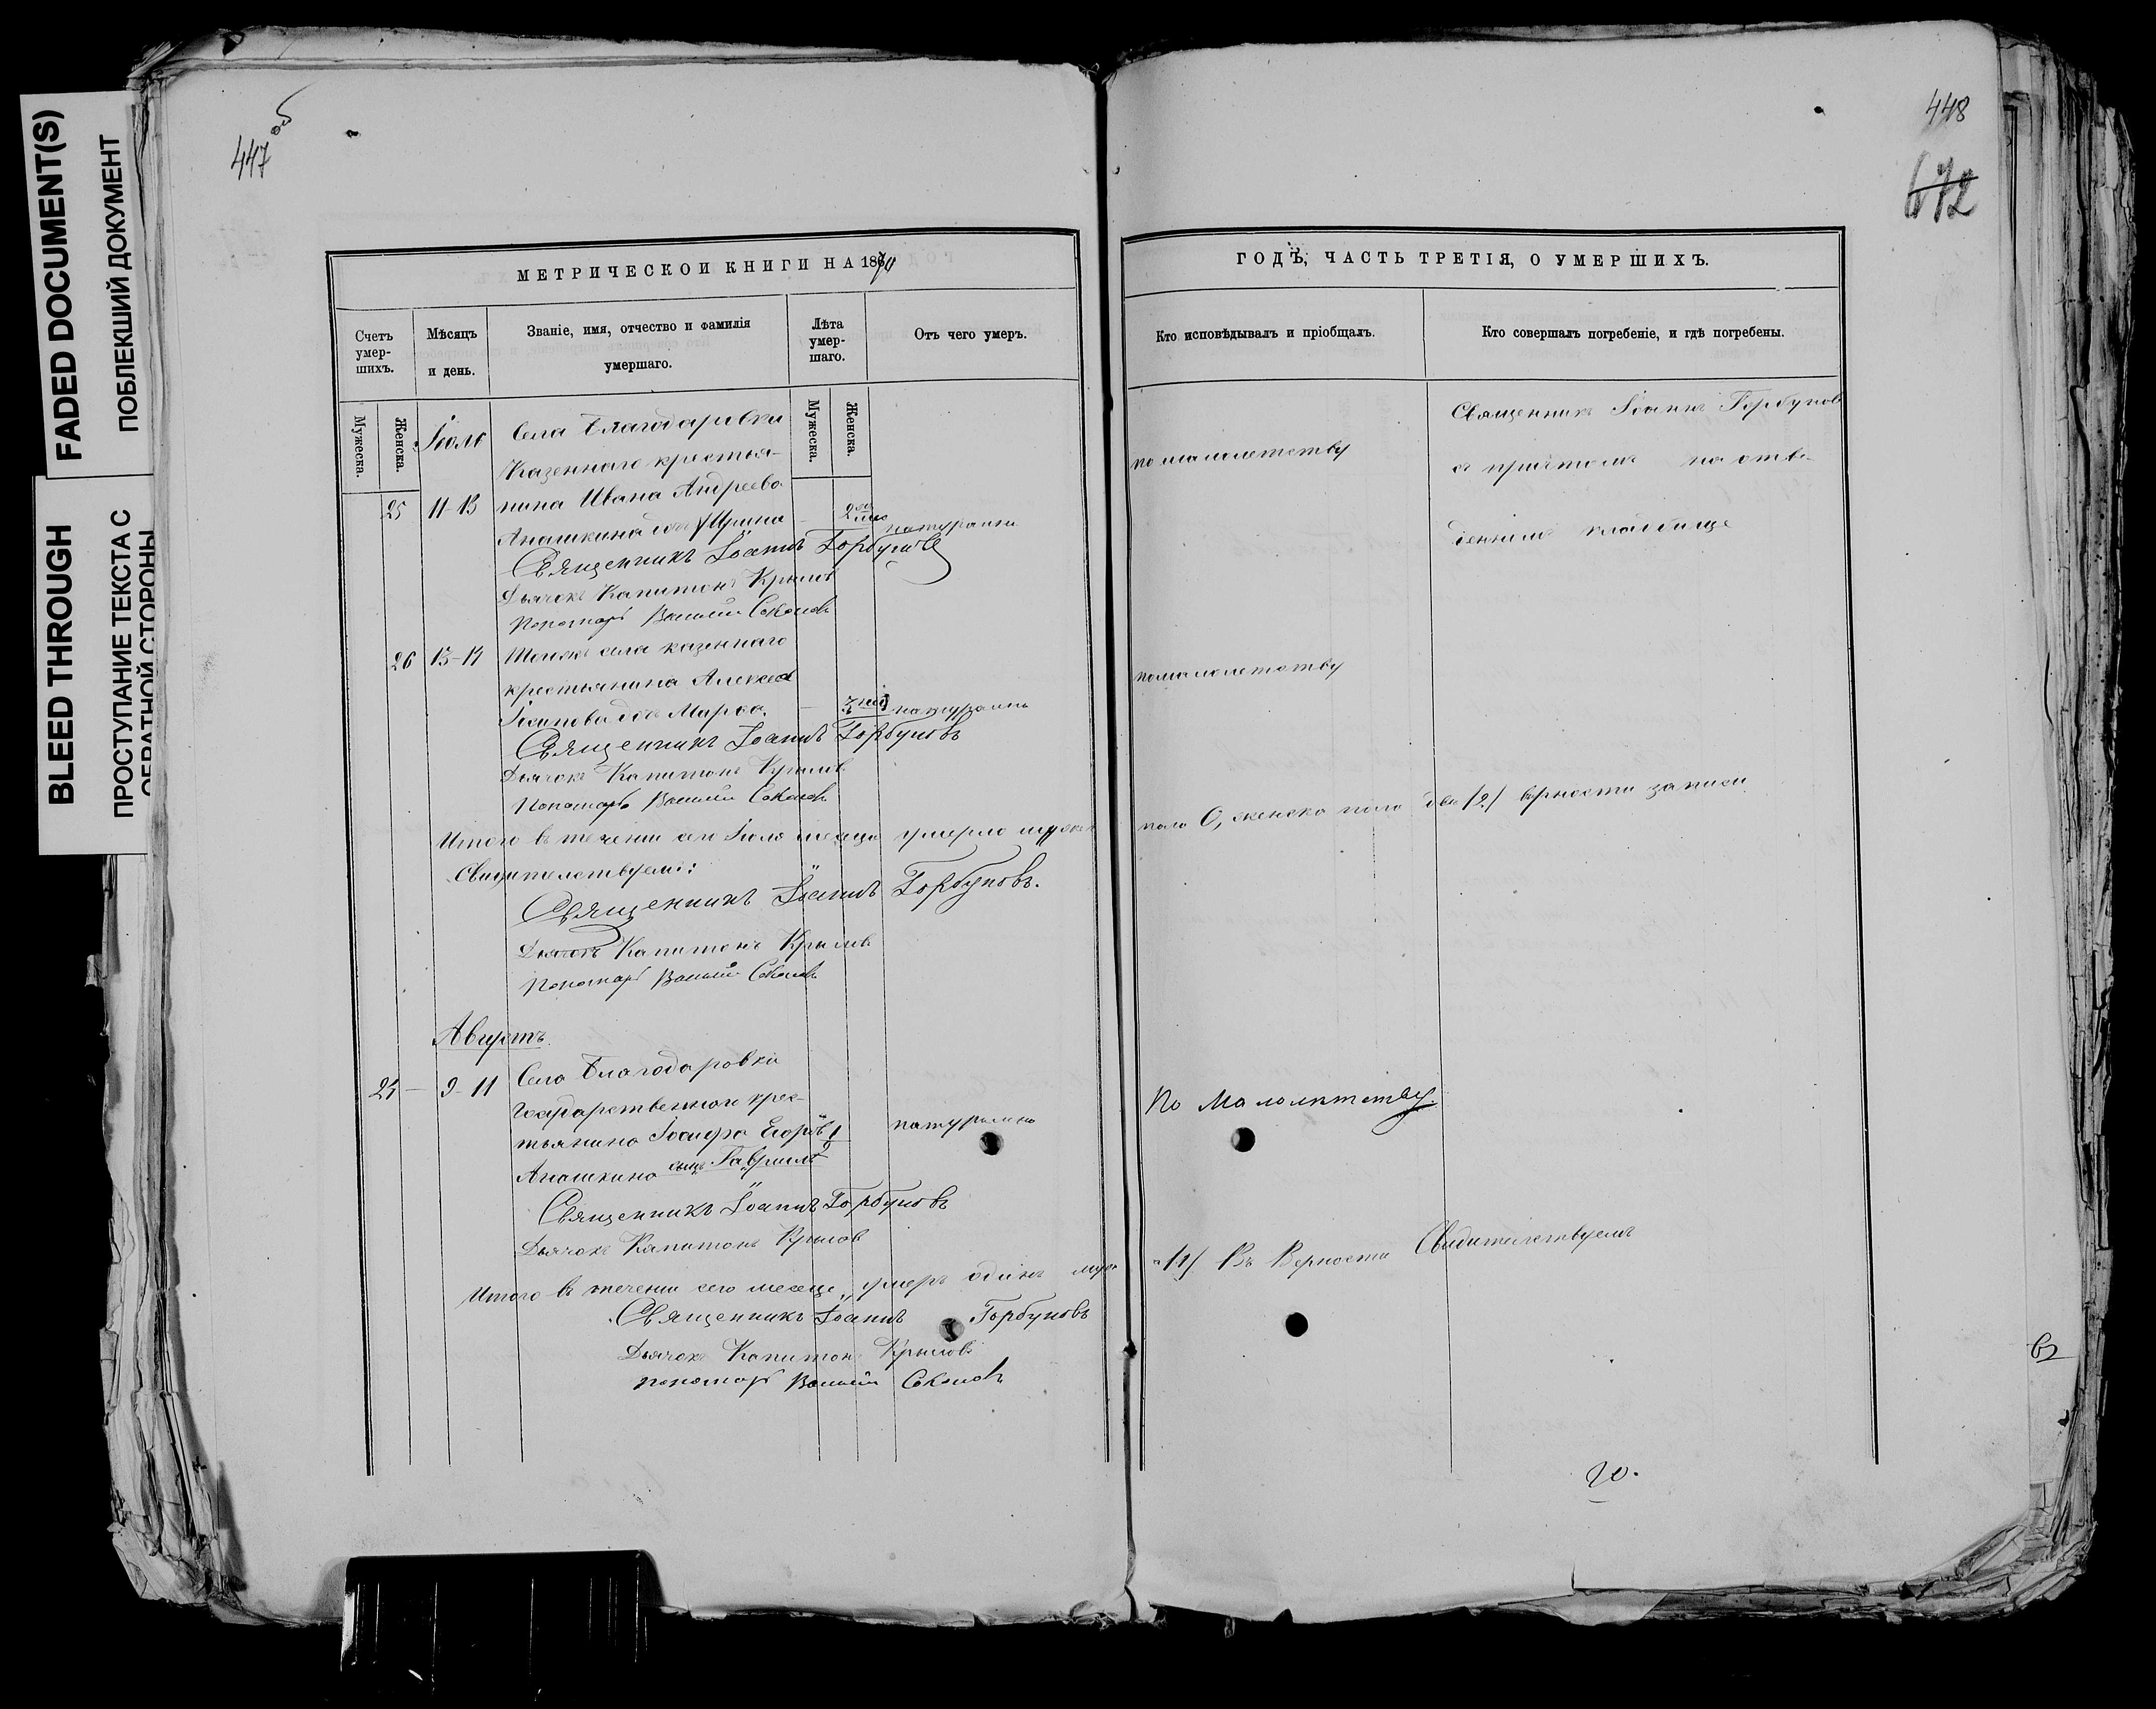 FADED DOCUMENT(S)
ПОБЛЕКШИЙ ДОКУМЕНТ
BLEED THROUGH
ПРОСТУПАНИЕ ТЕКСТА С
ОБРАТНОЙ СТОРОНЫ
447 об
МЕТРИЧЕСКОЙ КНИГИ НА 1870
Счетъ умер- шихъ.
Мѣсяцъ и день.
Званіе, имя, отчество и фамилія умершаго.
Лѣта умер- шаго.
Отъ чего умеръ.
Мужеска.
Женска.
Мужеска.
Женска.
Іюль
Села Благодаровки
Казеннаго крестья-
25 11-13 нина Ивана Андреева
Анашкина дочь Ирина 2 натурально
Священникъ Іоаннъ Горбуновъ
Дьячокъ Капитонъ Крыловъ
Пономарь Василій Соколовъ
26 13-14 села казеннаго
крестьянина Алексея
дочь Марѳа натурально
Священникъ Іоаннъ Горбуновъ
Дьячокъ Капитонъ Крыловъ
Пономарь Василій Соколовъ
Итого въ теченіи сего Іюля месяца умерло мужеска
Свидителствуемъ:
Священникъ Іоаннъ Горбуновъ.
Дьячокъ Капитонъ Крыловъ
Пономарь Василій Соколовъ
Августъ.
24 — 9-11 Села Благодаровки
Государственнаго крес-
тьянина Іосифа Егорова натурально
Анашкина сынъ Гавріилъ
Священникъ Іоаннъ Горбуновъ
Дьячокъ Капитонъ Крыловъ
Итого въ теченіи сего месеца умеръ одинъ муж
Священникъ Іоаннъ Горбуновъ
Дьячокъ Капитонъ Крыловъ
пономарь Василій Соколовъ
448
672
ГОДЪ, ЧАСТЬ ТРЕТІЯ, О УМЕРШИХЪ.
Кто исповѣдывалъ и пріобщалъ.
Кто совершалъ погребеніе, и гдѣ погребены.
Священникъ Іоаннъ Горбуновъ
по малолетству
съ причтомъ на отве-
денномъ кладбище
по малолетству
пола 0, женска пола две /2/ верности записи
По Малолетству.
/1/ Въ Верности Свидителствуемъ
20.